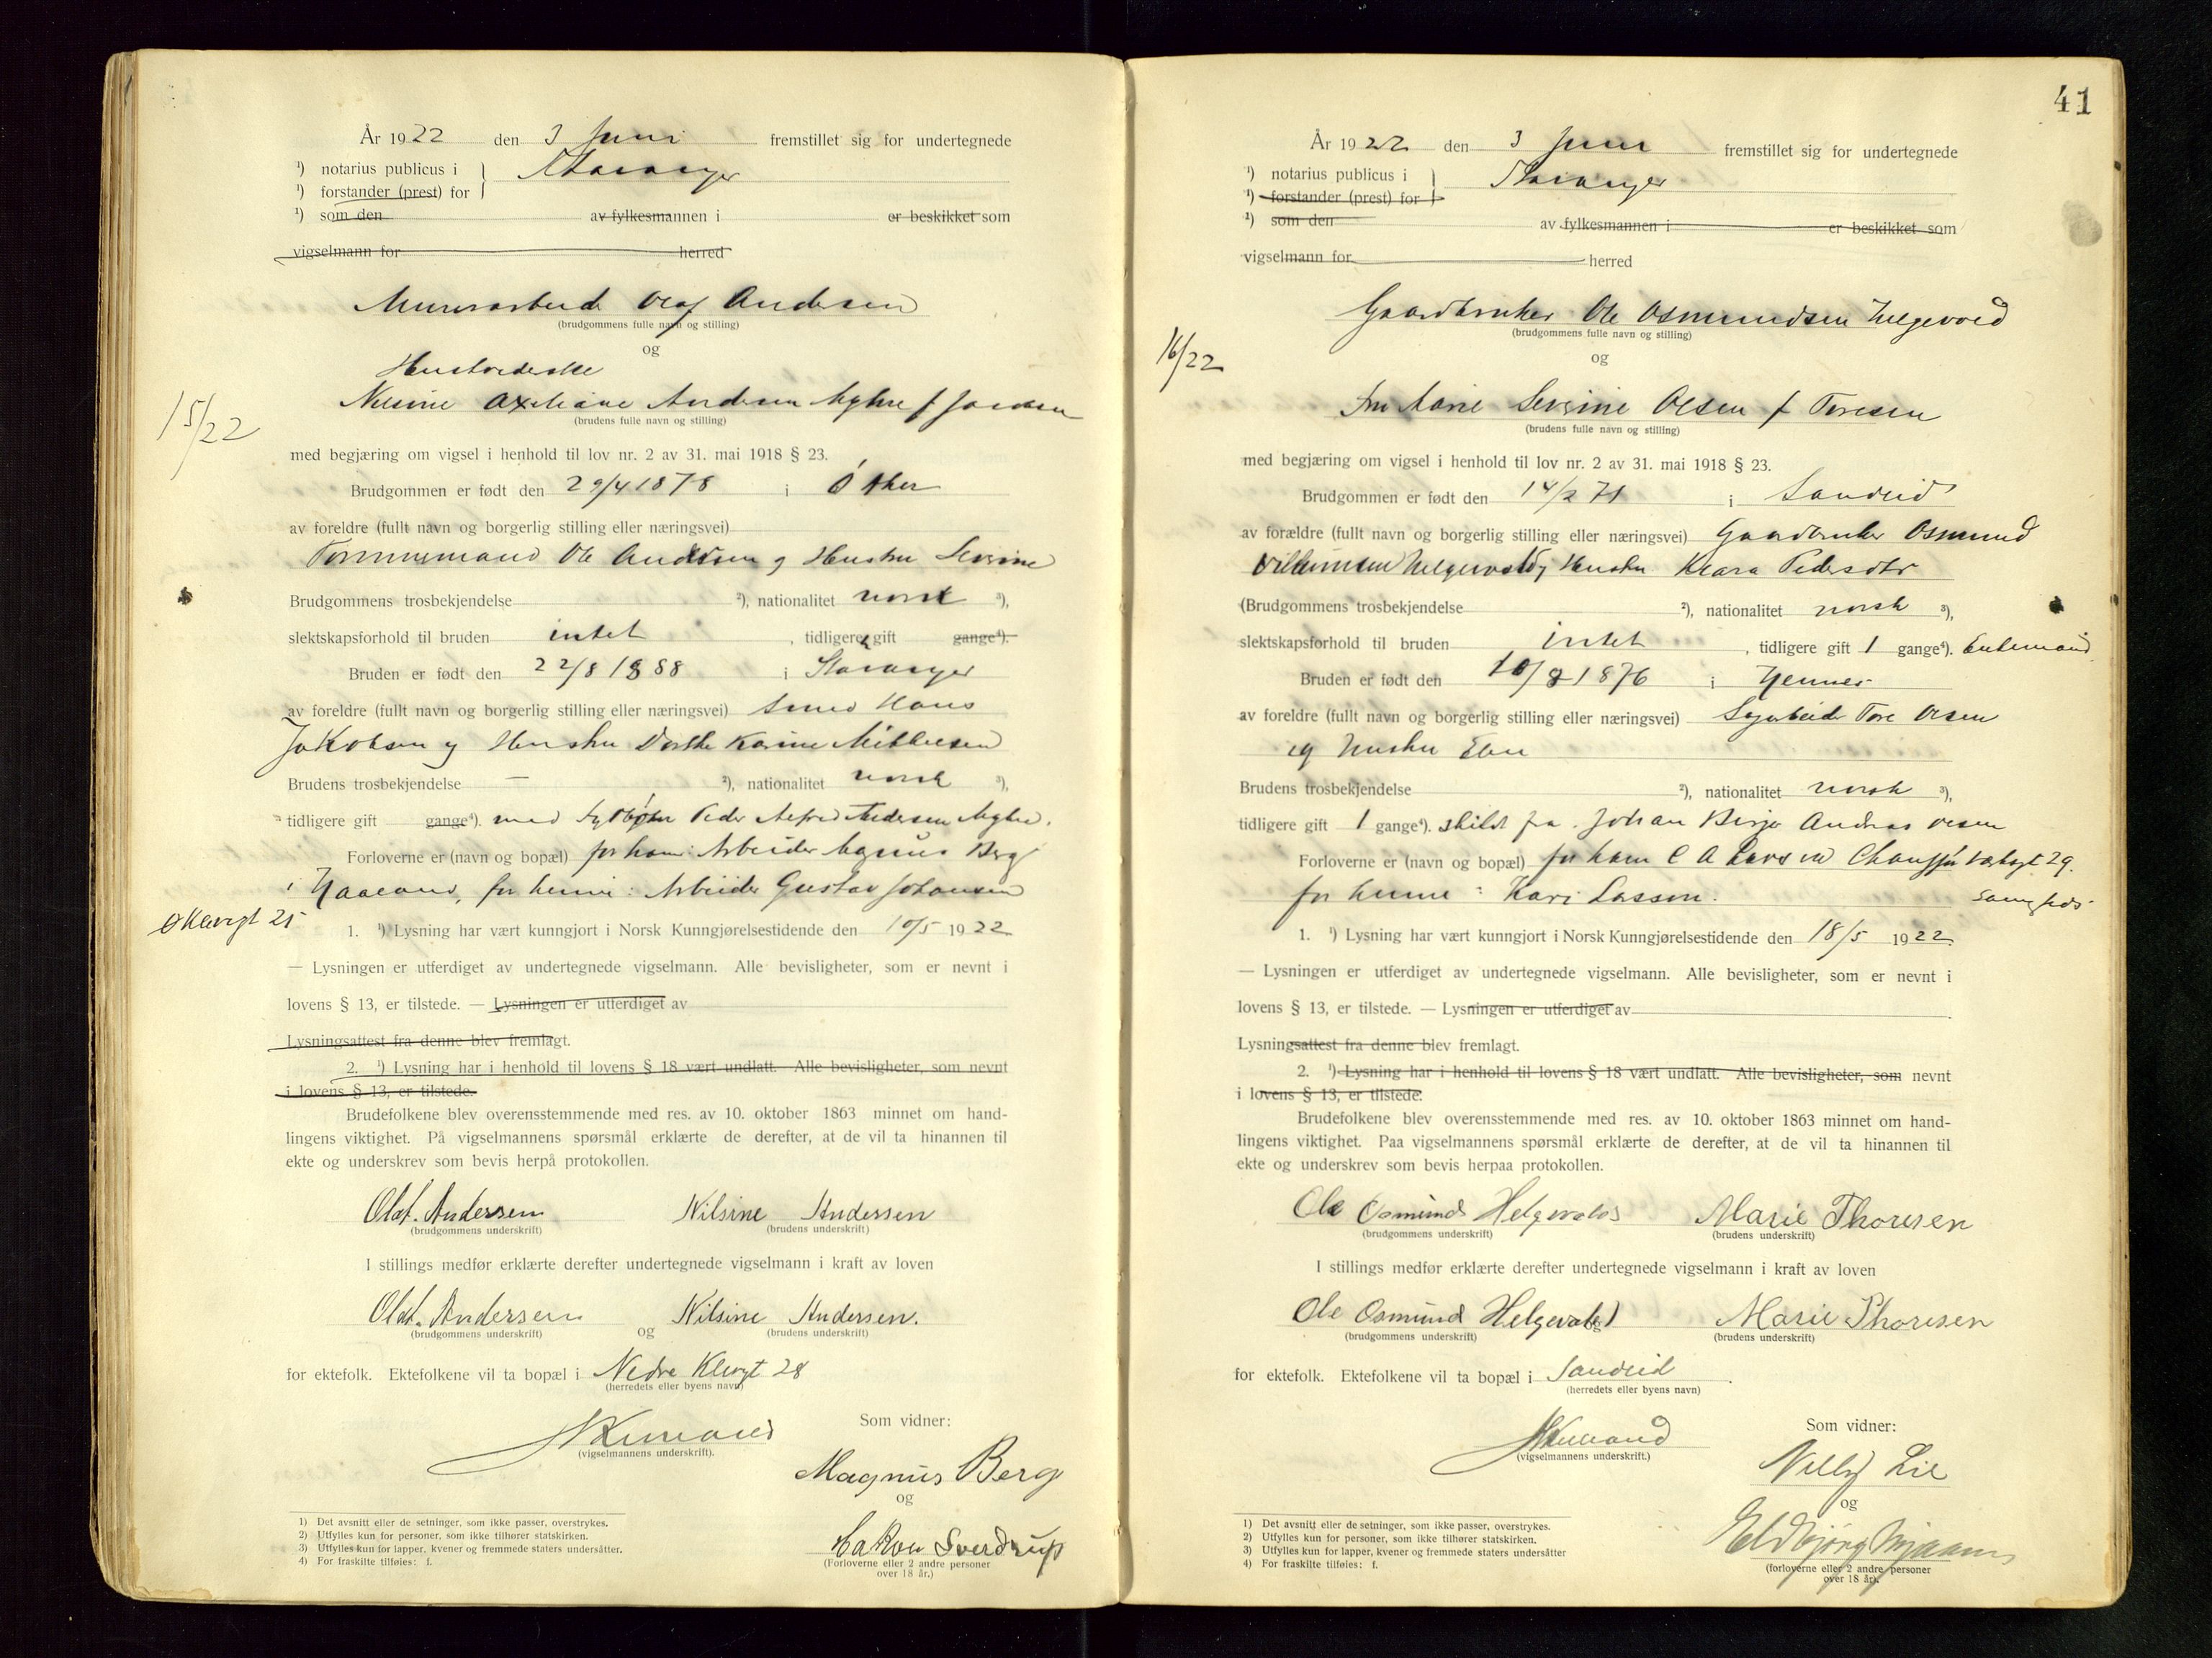 År 1922 den 3 Juni fremstillet sig for undertegnede
¹) notarius publicus i } Stavanger
¹) forstander (prest) for
¹) som den av fylkesmannen i er beskikket som
vigselmann for herred
Olaf Andersen
(brudgommens fulle navn og stilling)
og
Nilsine Andersen Myhre f
(brudens fulle navn og stilling)
15/22
med begjæring om vigsel i henhold til lov nr. 2 av 31. mai 1918 § 23.
Brudgommen er født den 29/4 1878 i
av foreldre (fullt navn og borgerlig stilling eller næringsvei)
Tømmermand Ole Andersen og Hustru Severine
Brudgommens trosbekjendelse ²), nationalitet norsk ³),
slektskapsforhold til bruden intet , tidligere gift gange⁴).
Bruden er født den 22/8 1888 i Stavanger
av foreldre (fullt navn og borgerlig stilling eller næringsvei) Smed Hans
Jakobsen og Hustru Dorthe Karine Mikkelsen
Brudens trosbekjendelse — ²), nationalitet norsk ³),
tidligere gift gange⁴). med Peder Alfred Andersen Myhre.
Forloverne er (navn og bopæl) for ham: Arbeider Magnus Berg
i for henne: Arbeider Gustav Johansen
Ø Klevgt 25
1. ¹) Lysning har vært kunngjort i Norsk Kunngjørelsestidende den 10/5 1922
— Lysningen er utferdiget av undertegnede vigselmann. Alle bevisligheter, som er nevnt i
lovens § 13, er tilstede. — Lysningen er utferdiget av
Lysningsattest fra denne blev fremlagt.
2. ¹) Lysning har i henhold til lovens § 18 vært undlatt. Alle bevisligheter, som nevnt
i lovens § 13, er tilstede.
Brudefolkene blev overensstemmende med res. av 10. oktober 1863 minnet om hand-
lingens viktighet. På vigselmannens spørsmål erklærte de derefter, at de vil ta hinannen til
ekte og underskrev som bevis herpå protokollen.
Olaf. Andersen Nilsine Andersen
(brudgommens underskrift) (brudens underskrift)
I stillings medfør erklærte derefter undertegnede vigselmann i kraft av loven
Olaf. Andersen og Nilsine Andersen.
(brudgommens underskrift) (brudens underskrift)
for ektefolk. Ektefolkene vil ta bopæl i Nedre Klevgt 28
(herredets eller byens navn)
Som vidner:
(vigselmannens underskrift).
Magnus Berg
og
Hakon Sverdrup
(Forloverne eller 2 andre personer
over 18 år.)
1) Det avsnitt eller de setninger, som ikke passer, overstrykes.
2) Utfylles kun for personer, som ikke tilhører statskirken.
3) Utfylles kun for lapper, kvener og fremmede staters undersåtter.
4) For fraskilte tilføies: f.
41
År 1922 den 3 Juni fremstillet sig for undertegnede
¹) notarius publicus i } Stavanger
¹) forstander (prest) for
¹) som den av fylkesmannen i er beskikket som
vigselmann for herred
Gaardbruker Ole Osmundsen Helgevold
(brudgommens fulle navn og stilling)
og
16/22
Fru Marie Severine Olsen f Toresen
(brudens fulle navn og stilling)
med begjæring om vigsel i henhold til lov nr. 2 av 31. mai 1918 § 23.
Brudgommen er født den 14/2 71 i Sandeid
av forældre (fullt navn og borgerlig stilling eller næringsvei) Gaardbruker Osmund
Villumsen Helgevold og Hustru Klara Pedersdtr
(Brudgommens trosbekjendelse ²), nationalitet norsk ³),
slektskapsforhold til bruden intet , tidligere gift 1 gange⁴). Enkemand
Bruden er født den 10/8 1876 i
av foreldre (fullt navn og borgerlig stilling eller næringsvei) Tore Olsen
og Hustru
Brudens trosbekjendelse ²), nationalitet norsk ³),
tidligere gift 1 gange⁴). skilt fra Johan Andreas Olsen
Forloverne er (navn og bopæl) for ham C A 29.
for henne: Kari Lasson. samesteds
1. ¹) Lysning har vært kunngjort i Norsk Kunngjørelsestidende den 18/5 1922
— Lysningen er utferdiget av undertegnede vigselmann. Alle bevisligheter, som er nevnt i
lovens § 13, er tilstede. — Lysningen er utferdiget av
Lysningsattest fra denne blev fremlagt.
2. ¹) Lysning har i henhold til lovens § 18 vært undlatt. Alle bevisligheter, som nevnt
i lovens § 13, er tilstede.
Brudefolkene blev overensstemmende med res. av 10. oktober 1863 minnet om hand-
lingens viktighet. Paa vigselmannens spørsmål erklærte de derefter, at de vil ta hinannen til
ekte og underskrev som bevis herpaa protokollen.
Ole Osmund Helgevold Marie Thoresen
(brudgommens underskrift) (brudens underskrift)
I stillings medfør erklærte derefter undertegnede vigselmann i kraft av loven
Ole Osmund Helgevold og Marie Thoresen
(brudgommens underskrift) (brudens underskrift)
for ektefolk. Ektefolkene vil ta bopæl i Sandeid
(herredets eller byens navn)
Som vidner:
(vigselmannens underskrift.)
Willy Lie
og
Eldbjørg
(forloverne eller 2 andre personer
over 18 år).
1) Det avsnitt eller de setninger, som ikke passer, overstrykes.
2) Utfylles kun for personer, som ikke tilhører statskirken.
3) Utfylles kun for lapper, kvener og fremmede staters undersåtter
4) For fraskilte tilføies: f.